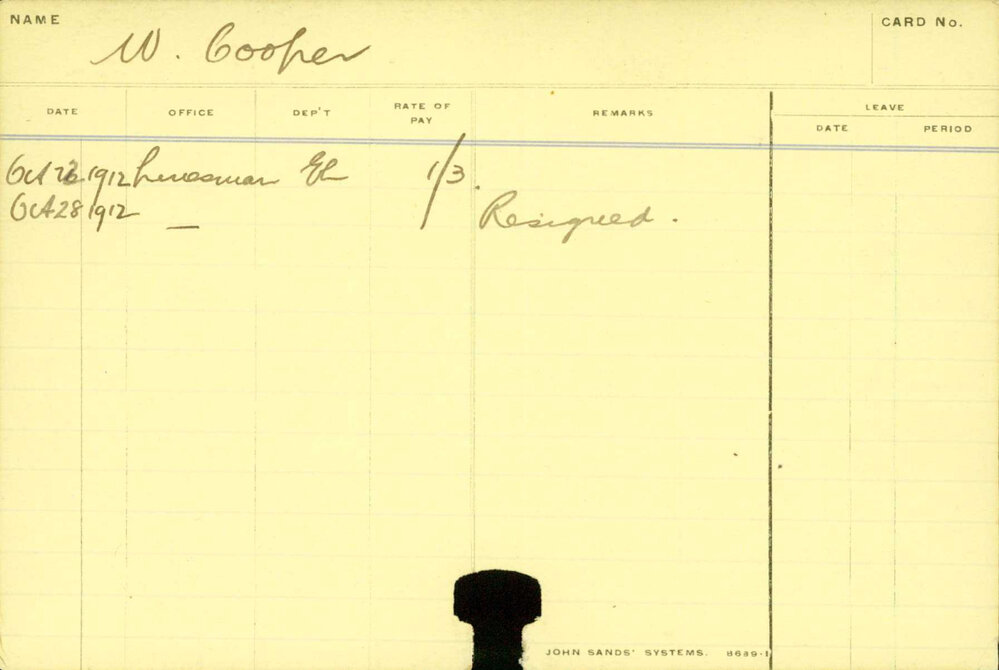 NAME
W. Cooper
CARD No.
DATE OFFICE DEP'T RATE OF PAY REMARKS LEAVE
DATE PERIOD
Oct 1912 Linesman El 1/3.
Oct 28 1912 — Resigned.
JOHN SANDS' SYSTEMS. 8689-1